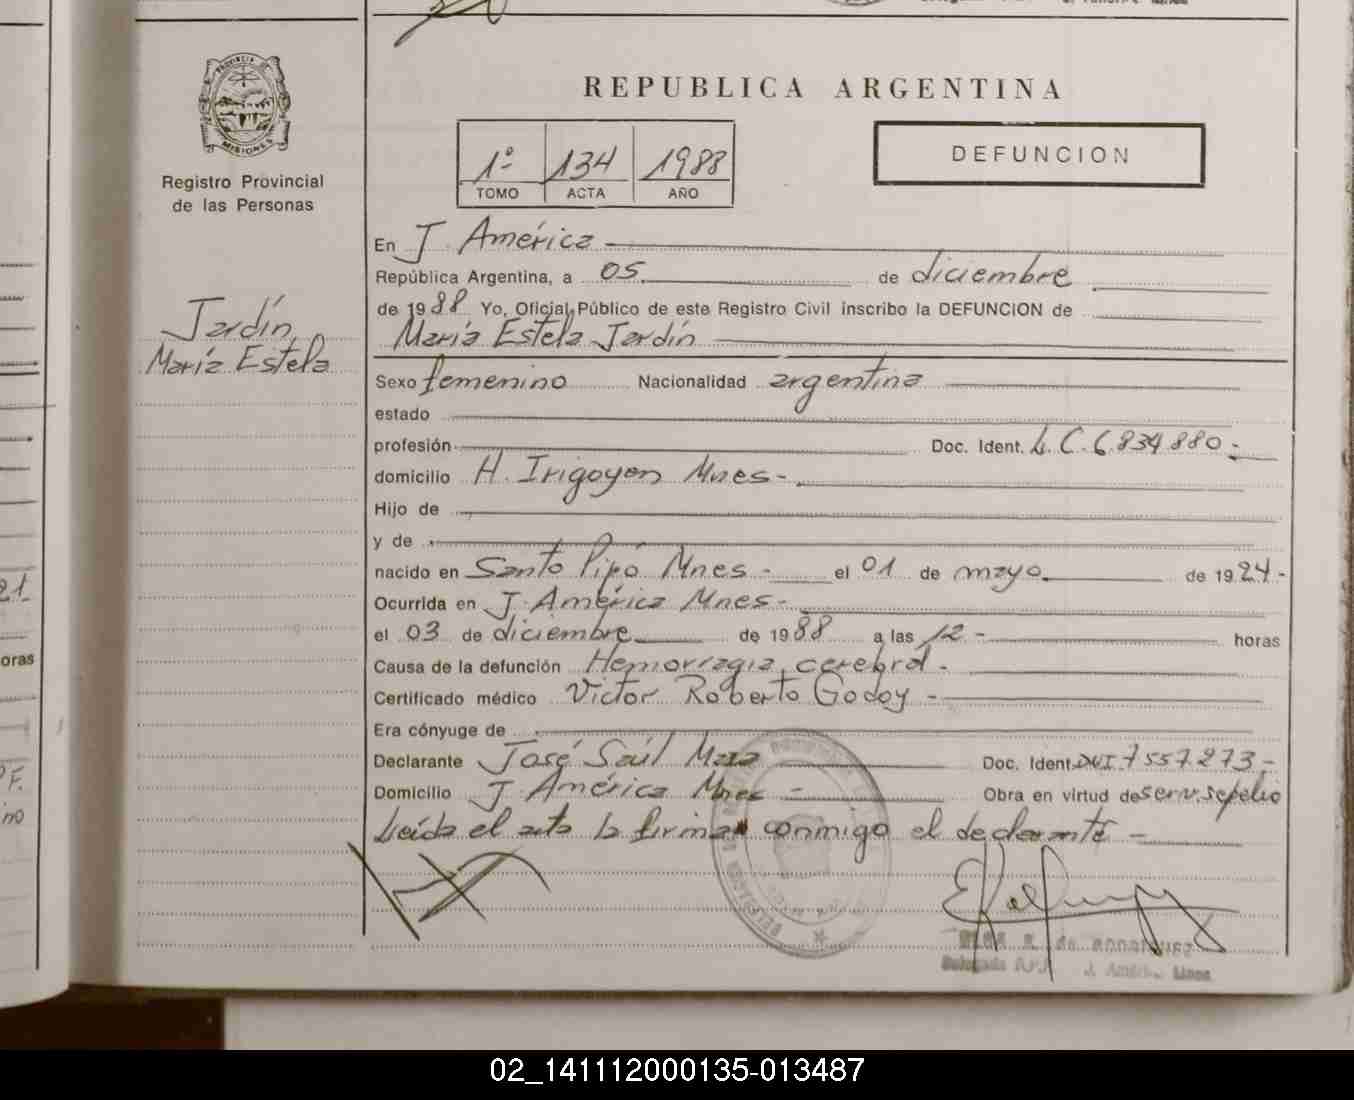 REPUBLICA ARGENTINA
PROVINCIA DE
MISIONES
Registro Provincial
de las Personas
1º 134 1988
TOMO ACTA AÑO
DEFUNCION
Jardín
María Estela
En J. América
República Argentina, a 05 de diciembre
de 1988 Yo, Oficial Público de este Registro Civil inscribo la DEFUNCION de
María Estela Jardín
Sexo femenino Nacionalidad argentina
estado
profesión Doc. Ident. L.C. 6.834.880.-
domicilio H. Irigoyen Mnes-
Hijo de
y de
nacido en Santo Pipó Mnes- el 01 de mayo de 1924-
Ocurrida en J. América Mnes-
el 03 de diciembre de 1988 a las 12- horas
Causa de la defunción Hemorragia cerebral-
Certificado médico Victor Roberto Godoy-
Era cónyuge de
Declarante José Saúl Doc. Ident. DNI 7557.273-
Domicilio J. América Mnes- Obra en virtud de serv. sepelio
Leída el acta la firma conmigo el declarante-
21
oras
F.
no
02_141112000135-013487